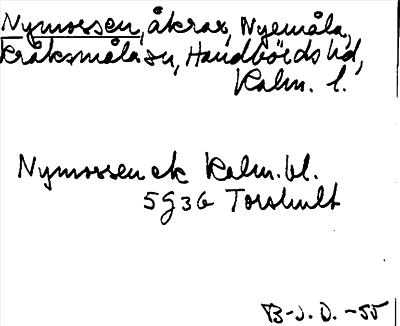 Nymossen, åkrar, Nyemåla,
Kråksmåla sn, Handbörds hd,
Kalm. l.
Nymossen ek Kalm. bl.
5G3G Torshult
B-J.O. -55